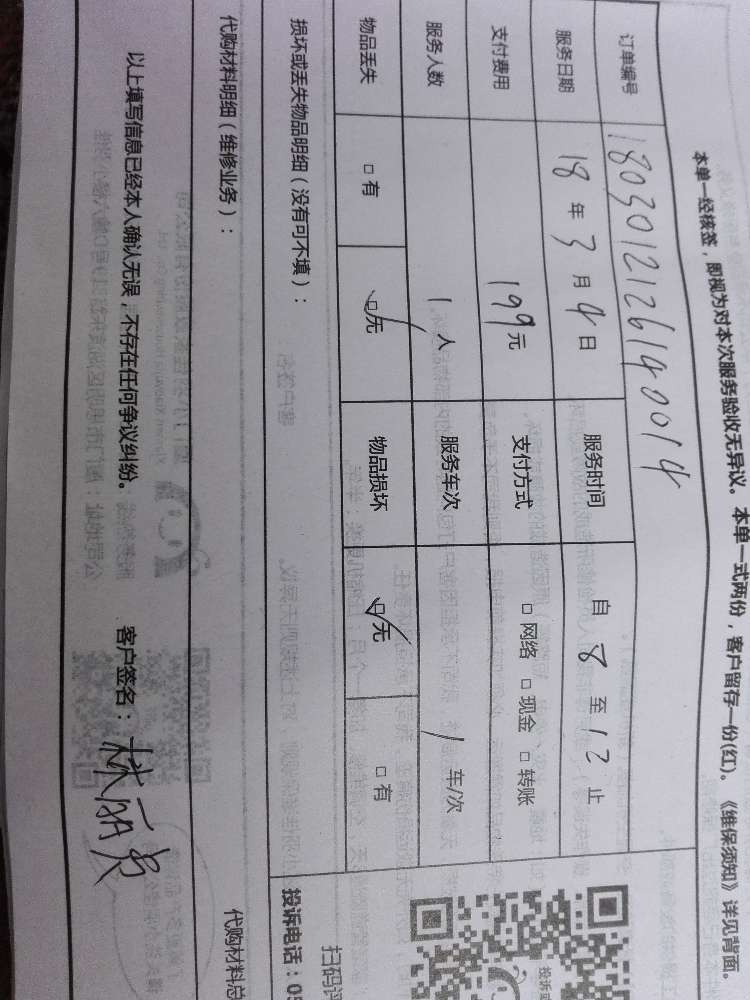 本单一经核签，即视为对本次服务验收无异议。本单一式两份，客户留存一份(红)。《维保须知》详见背面。
订单编号 1803012126140014
服务日期 18 年 3 月 4 日 服务时间 自 8 至 12 止
支付费用 199 元 支付方式 □ 网络 □ 现金 □ 转账
服务人数 1 人 服务车次 1 车/次
物品丢失 □ 有 ☑无 物品损坏 ☑无 □ 有
损坏或丢失物品明细（没有可不填）：
代购材料明细（维修业务）： 代购材料总
以上填写信息已经本人确认无误，不存在任何争议纠纷。 客户签名：林丽贞
投诉
扫码评
投诉电话：05